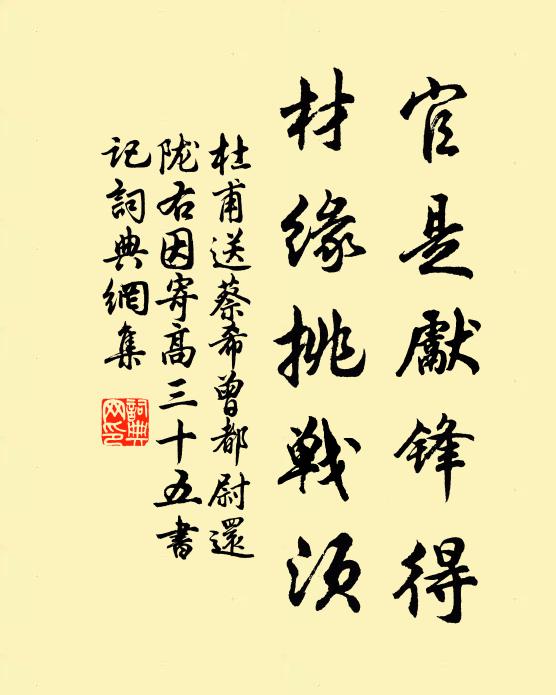 官是獻锋得
材缘挑戦须
杜甫送蔡希曾都尉還
陇右因寄高三十五書
记詞典網集
詞典
网印